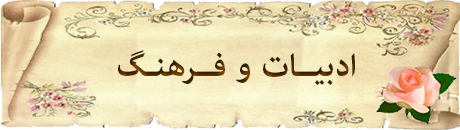 ادبیــات و فــرهنـگ